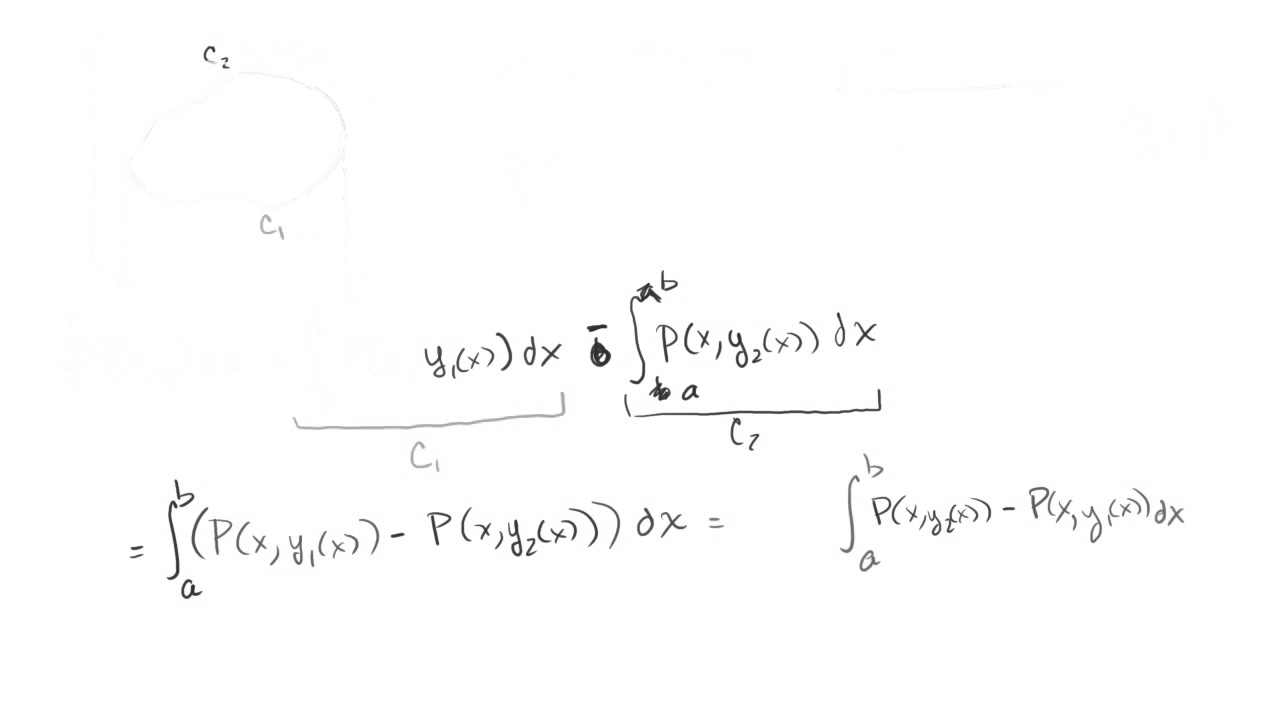 C₂
C₁
y₁(x)) dx - ∫ₐᵇ P(x, y₂(x)) dx
C₁ C₂
= ∫ₐᵇ (P(x, y₁(x)) - P(x, y₂(x))) dx = ∫ₐᵇ P(x, y₂(x)) - P(x, y₁(x)) dx